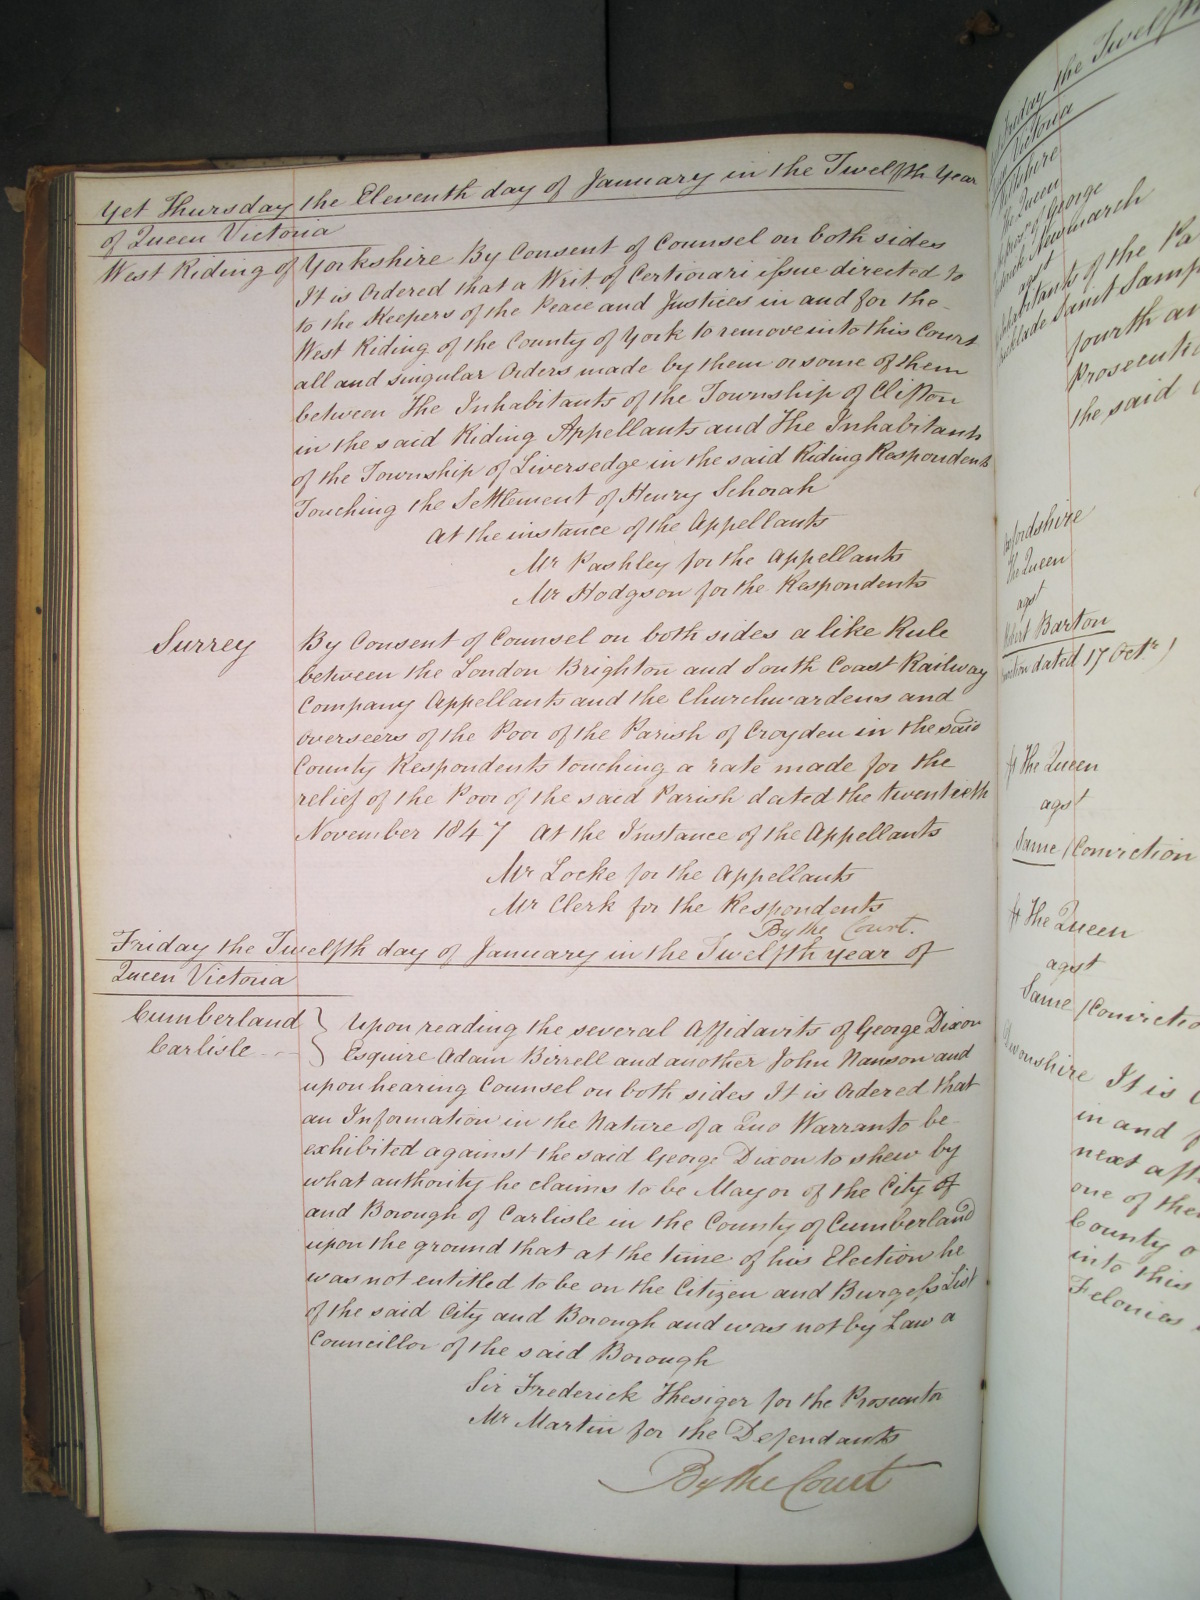 Yet Thursday the Eleventh day of January in the Twelfth Year
of Queen Victoria
West Riding of Yorkshire By Consent of Counsel on both sides
It is Ordered that a Writ of Certiorari issue directed to
to the Keepers of the Peace and Justices in and for the
West Riding of the County of York to remove into this Court
all and singular Orders made by them or some of them
between The Inhabitants of the Township of Clifton
in the said Riding Appellants and The Inhabitants
of the Township of Liversedge in the said Riding Respondents
Touching the Settlement of Henry Schorah
At the instance of the Appellants
Mr Pashley for the Appellants
Mr Hodgson for the Respondents
Surrey By Consent of Counsel on both sides a like Rule
between the London Brighton and South Coast Railway
Company Appellants and the Churchwardens and
Overseers of the Poor of the Parish of Croyden in the said
County Respondents touching a rate made for the
relief of the Poor of the said Parish dated the twentieth
November 1847 At the Instance of the Appellants
Mr Locke for the Appellants
Mr Clerk for the Respondents
By the Court.
Friday the Twelfth day of January in the Twelfth year of
Queen Victoria
Cumberland } Upon reading the several Affidavits of George Dixon
Carlisle } Esquire Adam Birrell and another John Nanson and
upon hearing Counsel on both sides It is Ordered that
an Information in the Nature of a Quo Warranto be
exhibited against the said George Dixon to shew by
what authority he claims to be Mayor of the City of
and Borough of Carlisle in the County of Cumberland
upon the ground that at the time of his Election he
was not entitled to be on the Citizen and Burgess List
of the said City and Borough and was not by Law a
Councillor of the said Borough
Sir Frederick Thesiger for the Prosecutor
Mr Martin for the Defendants
By the Court
Friday the Twelfth
Victoria
The Queen
of George
Newmarch
agst
of the Pa
Saint Samp
fourth an
Prosecuti
the said
The Queen
agst
Barton
dated 17 Octr )
The Queen
agst
Same (Conviction
The Queen
agst
Same (Convictio
It is O
in and f
next aft
one of the
County o
into this
Felonies